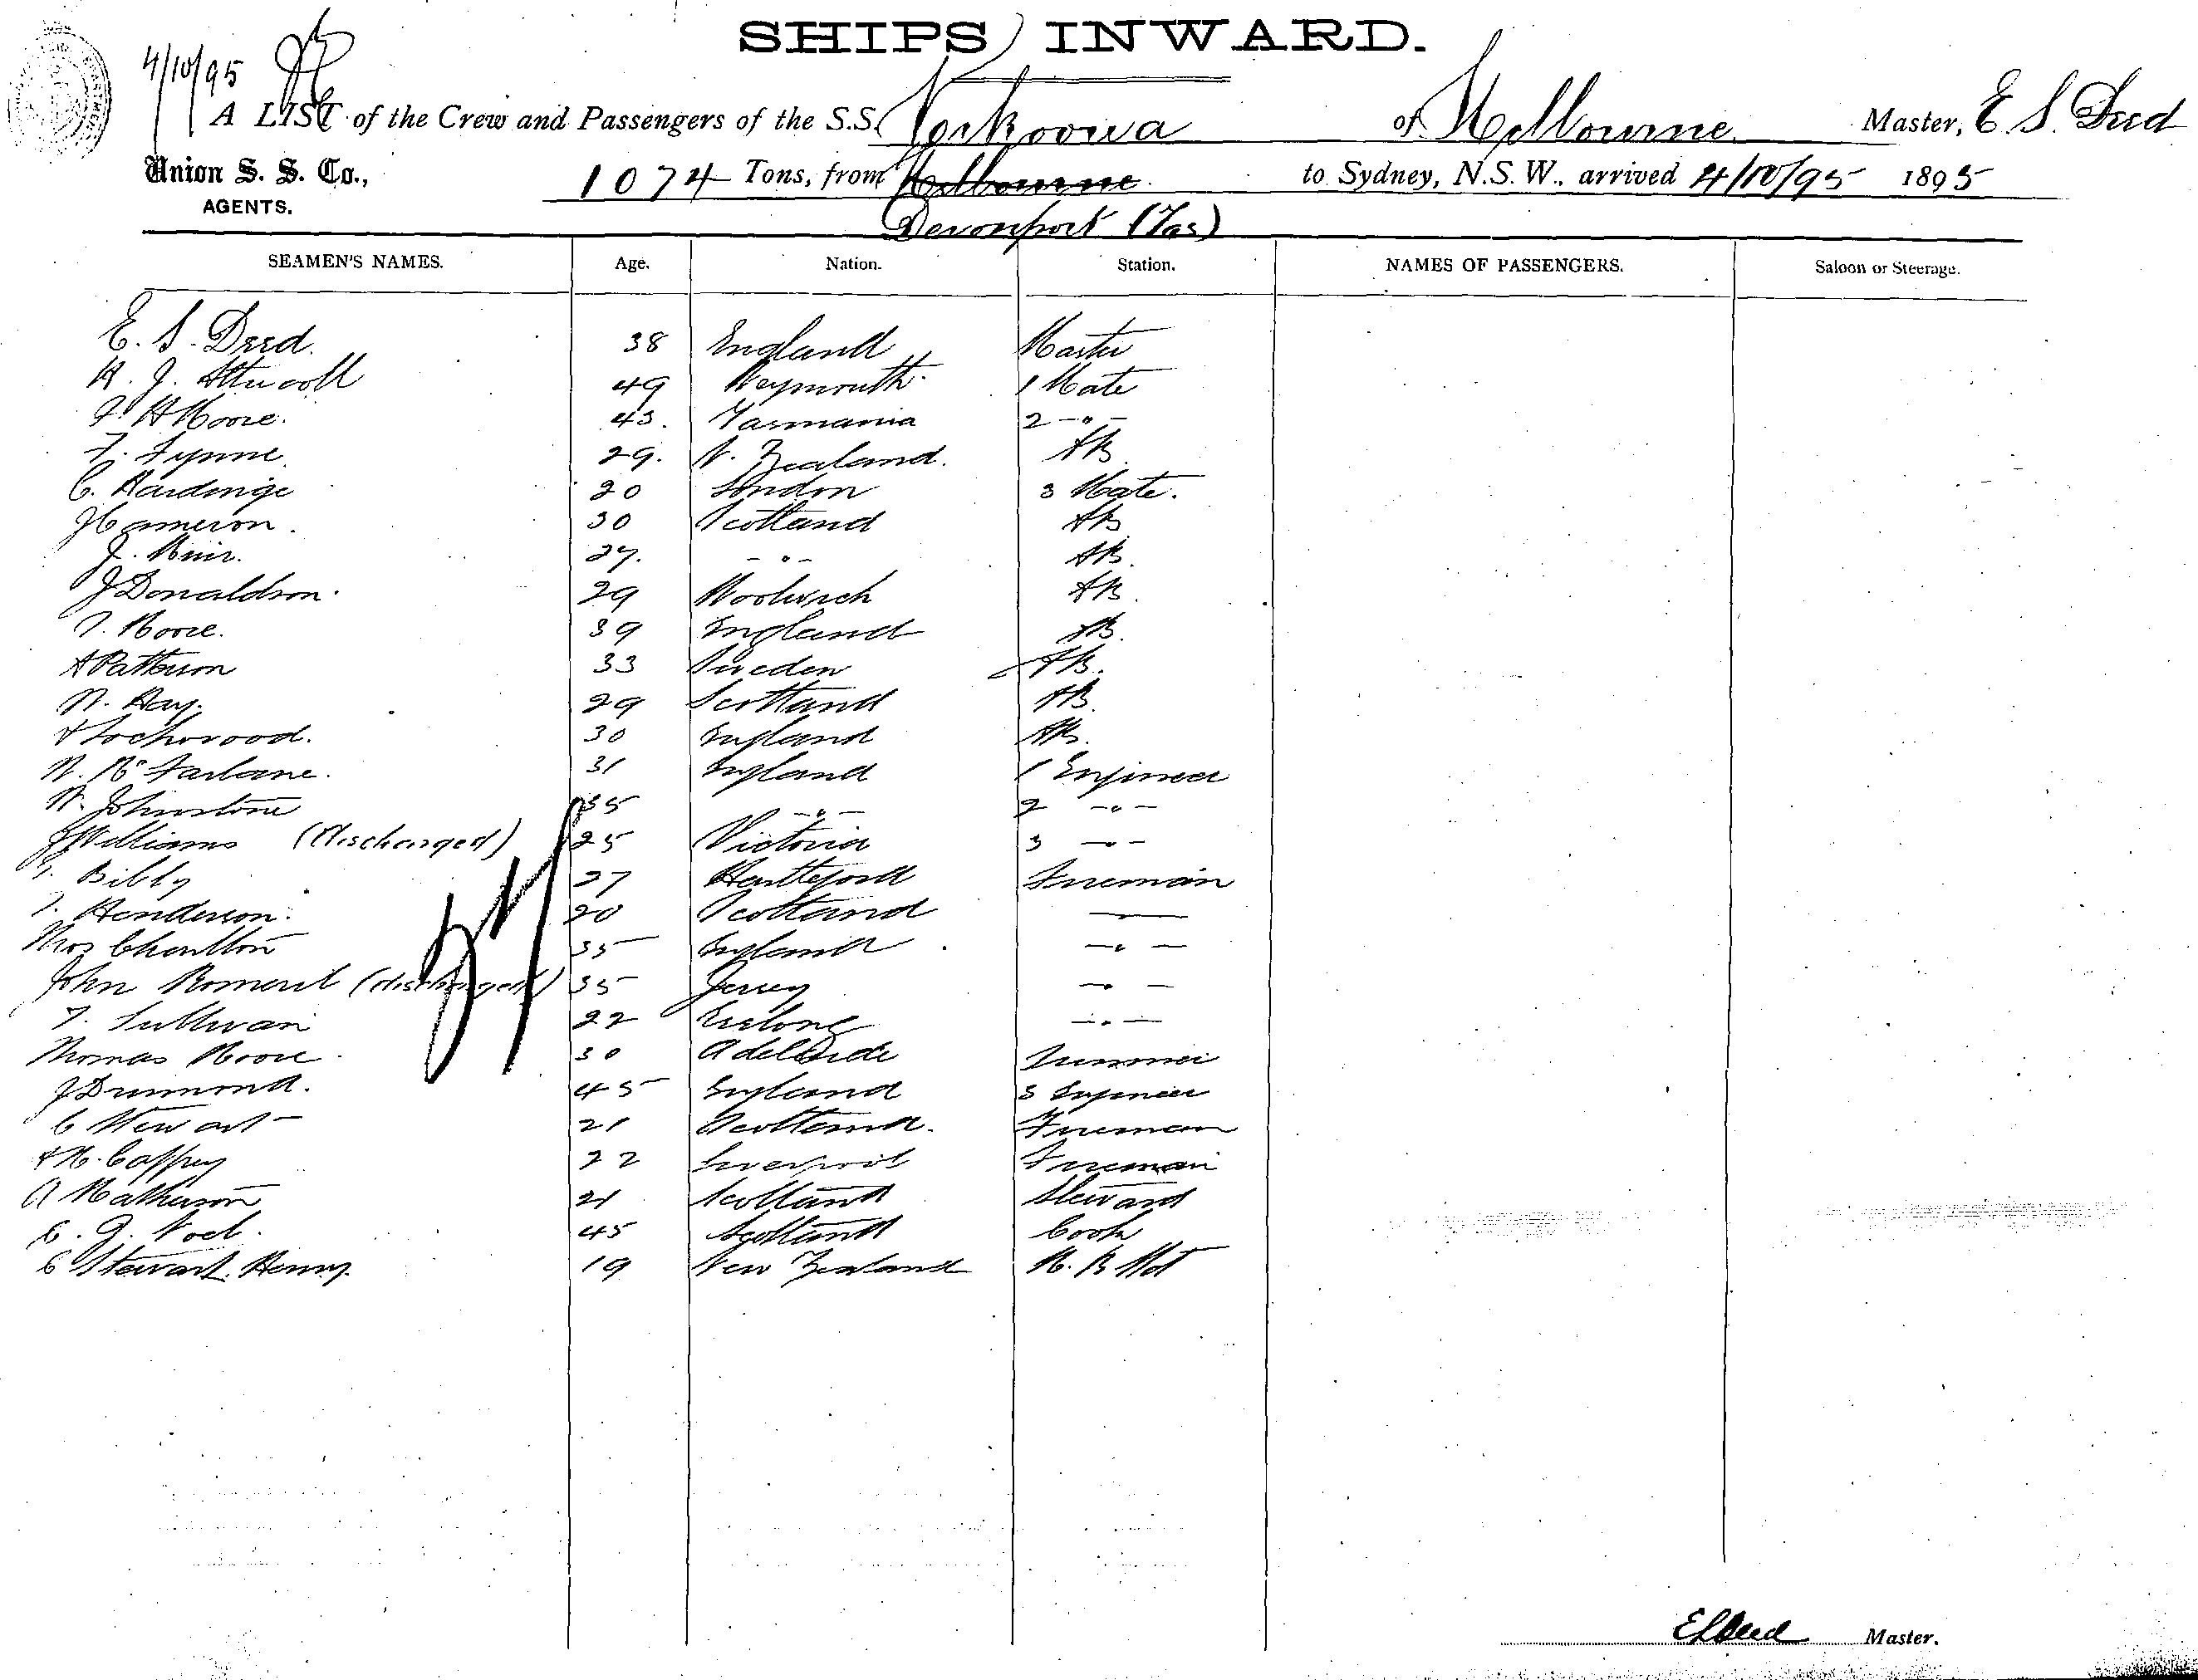 SHIPS INWARD.
4/10/95
A LIST of the Crew and Passengers of the S.S. of Melbourne Master, E. S. Deed
Union S. S. Co.,
AGENTS.
1074 Tons, from Melbourne to Sydney, N.S.W., arrived 4/10/95 1895
Devonport (Tas)
SEAMEN'S NAMES. Age. Nation. Station. NAMES OF PASSENGERS. Saloon or Steerage.
E. S. Deed. 38 England Master
49 Weymouth 1 Mate
Moore. 43. Tasmania 2 -"-
29. N. Zealand. AB
C. Hardinge 20 London 3 Mate.
J Cameron. 30 Scotland AB
J. Muir. 27. -"- AB.
J Donaldson. 29 Woolwich AB.
39 England AB.
A Patterson 33 Sweden AB.
W. Hay. 29 Scotland AB.
Lockwood. 30 England AB.
Mc Farlane. 31 England 1 Engineer
W. Johnstone 35 -"- 2 -"-
J Williams (Discharged) 25 Victoria 3 -"-
Bibby 27 Fireman
Henderson. 20 Scotland
Thos Charlton 35 England -"-
John Romeril (discharged) 35 Jersey -"-
T. Sullivan 22 Geelong -"-
Thomas Moore. 30 Adelaide Trimmer
J Drummond. 45 England 3 Engineer
C Stewart 21 Scotland. Fireman
Mc Caffrey 22 Liverpool Fireman
A Matheson 21 Scotland Steward
45 Scotland Cook
C Stewart Henry. 19 New Zealand
E S Deed Master.